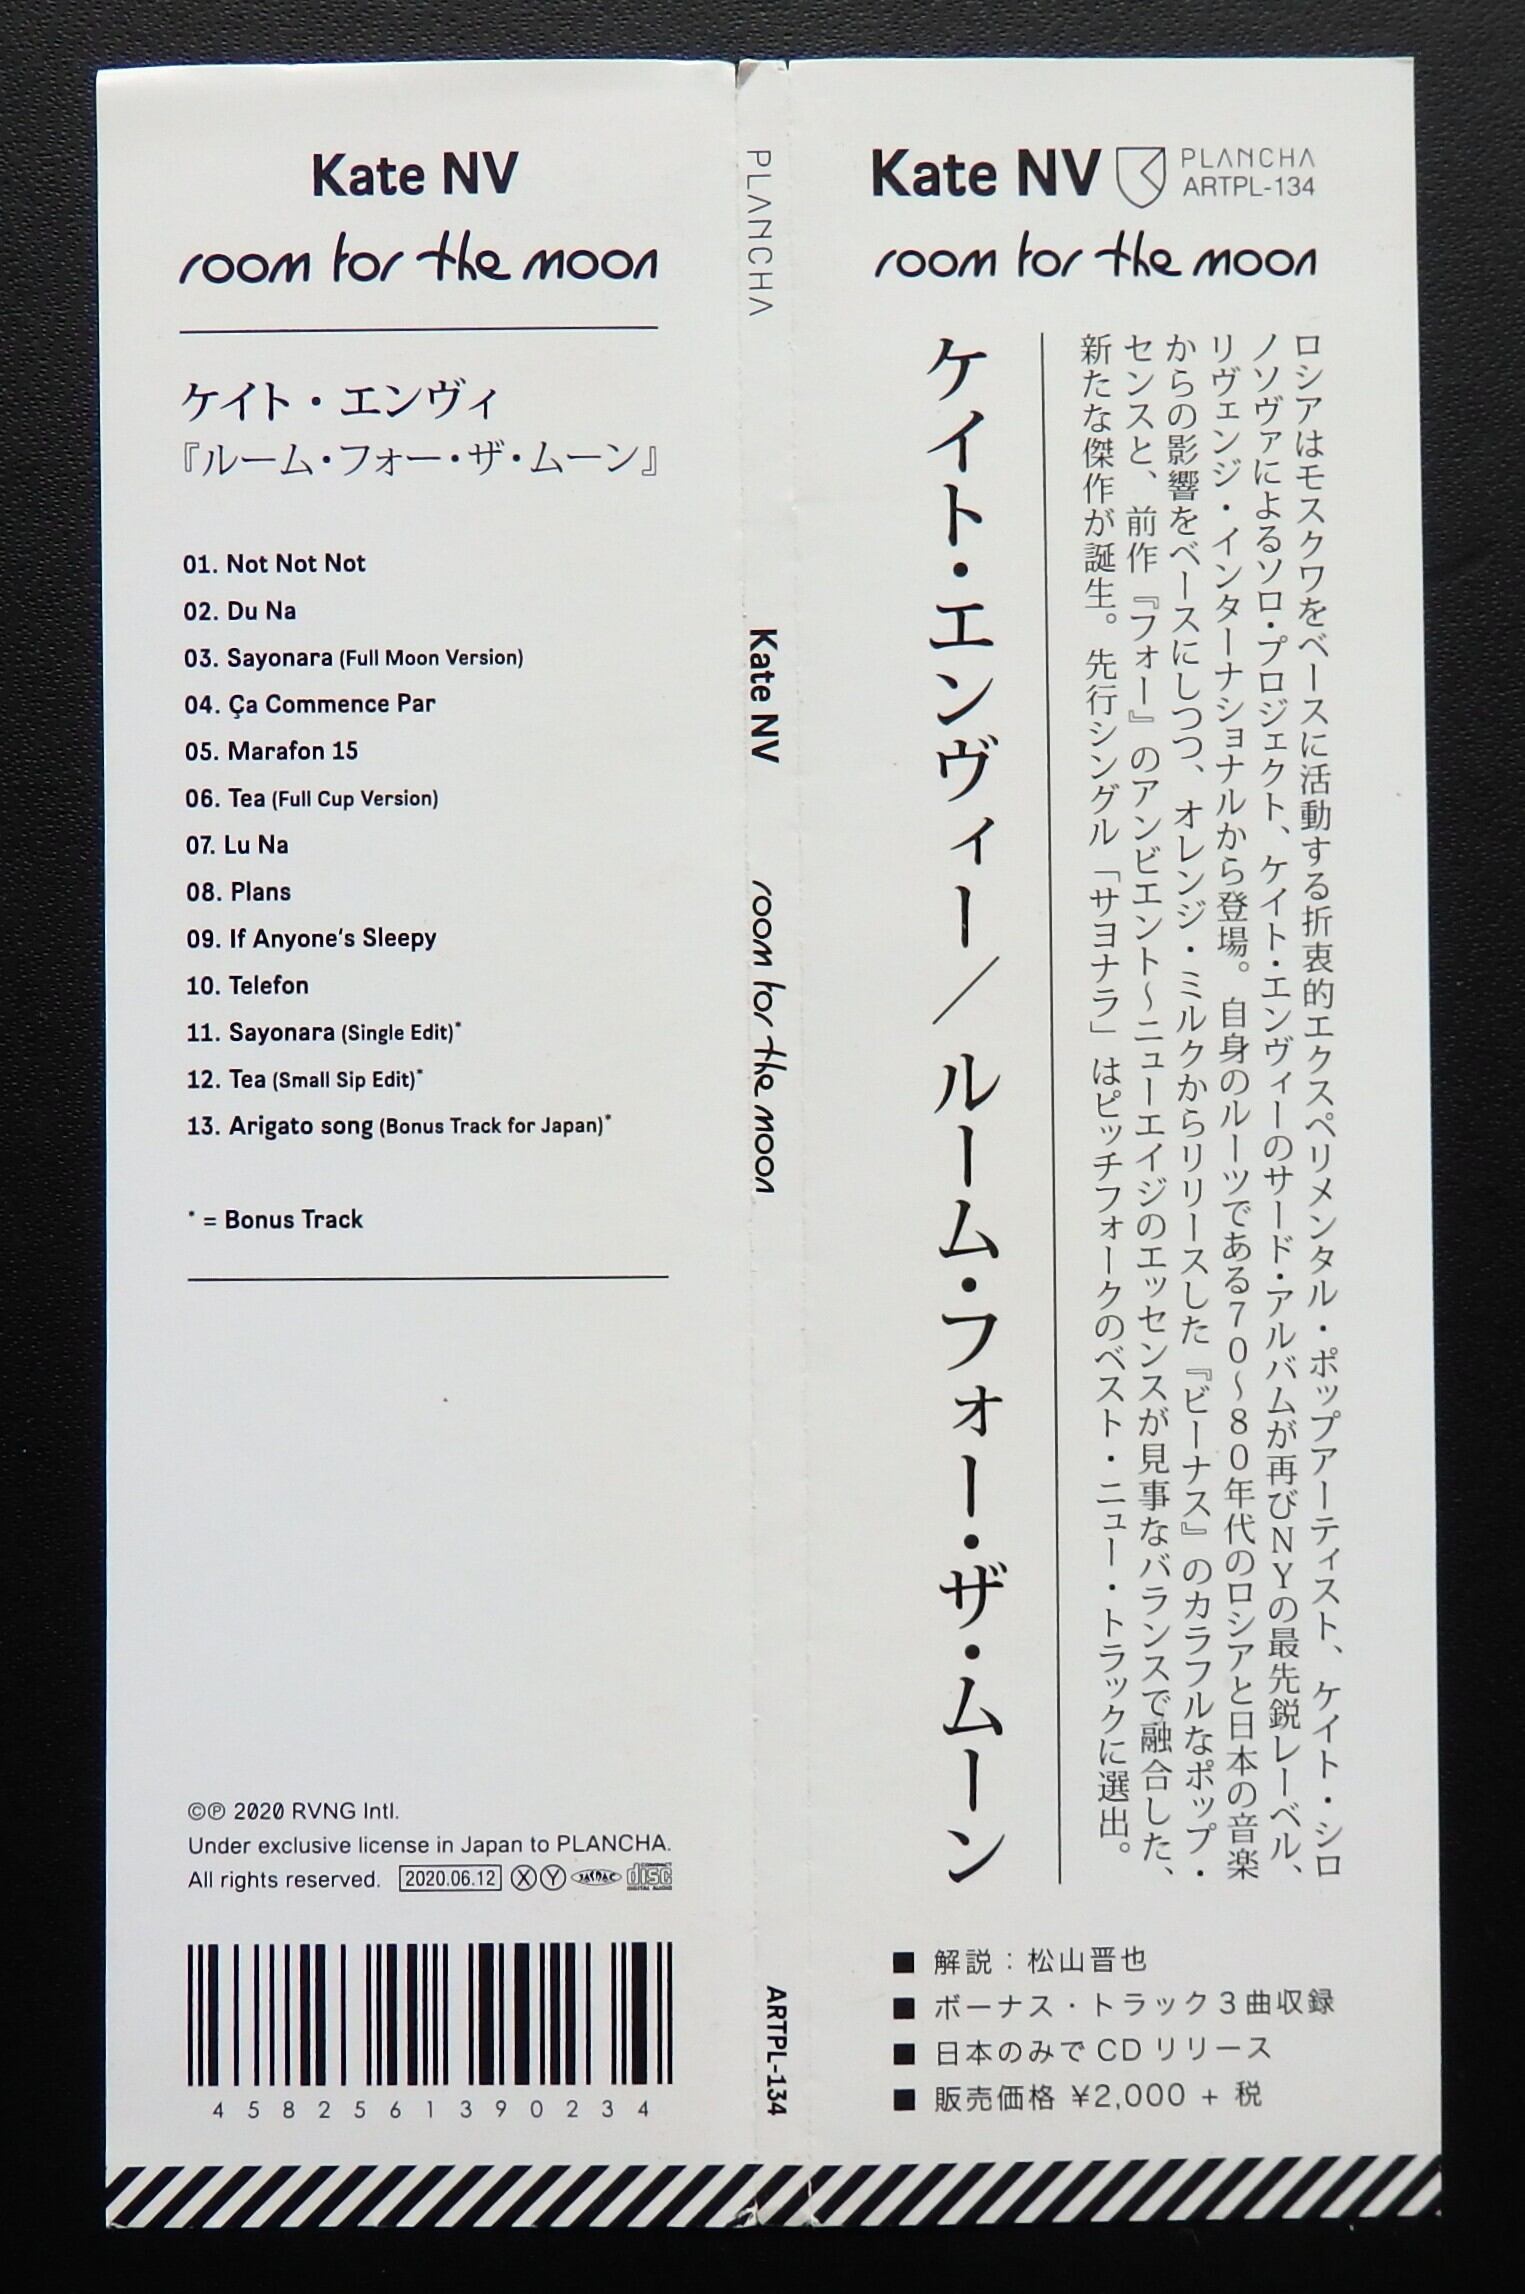 Kate NV
room for the moon
ケイト・エンヴィ
『ルーム・フォー・ザ・ムーン』
01. Not Not Not
02. Du Na
03. Sayonara (Full Moon Version)
04. Ça Commence Par
05. Marafon 15
06. Tea (Full Cup Version)
07. Lu Na
08. Plans
09. If Anyone's Sleepy
10. Telefon
11. Sayonara (Single Edit)*
12. Tea (Small Sip Edit)*
13. Arigato song (Bonus Track for Japan)*
* = Bonus Track
©℗ 2020 RVNG Intl.
Under exclusive license in Japan to PLANCHA.
All rights reserved. 2020.06.12 Ⓧ Ⓨ JASRAC COMPACT disc DIGITAL AUDIO
4582561390234
PLANCHA
Kate NV
room for the moon
ARTPL-134
Kate NV
PLANCHA
ARTPL-134
room for the moon
ロシアはモスクワをベースに活動する折衷的エクスペリメンタル・ポップアーティスト、ケイト・シロ
ノソヴァによるソロ・プロジェクト、ケイト・エンヴィーのサード・アルバムが再びNYの最先鋭レーベル、
リヴェンジ・インターナショナルから登場。自身のルーツである70〜80年代のロシアと日本の音楽
からの影響をベースにしつつ、オレンジ・ミルクからリリースした『ビーナス』のカラフルなポップ・
センスと、前作『フォー』のアンビエント〜ニューエイジのエッセンスが見事なバランスで融合した、
新たな傑作が誕生。先行シングル「サヨナラ」はピッチフォークのベスト・ニュー・トラックに選出。
ケイト・エンヴィー／ルーム・フォー・ザ・ムーン
■ 解説：松山晋也
■ ボーナス・トラック3曲収録
■ 日本のみでCDリリース
■ 販売価格 ¥2,000 + 税